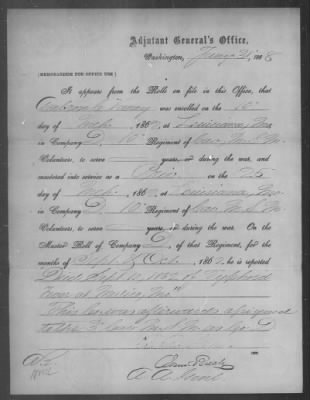 Adjutant General's Office,
Washington, Jany 31, 1868
(MEMORANDUM FOR OFFICE USE.)
It appears from the Rolls on file in this Office, that
was enrolled on the 10
day of 186 at Louisiana, Mo
in Company D, 10" Regiment of Cav M. S. M.
Volunteers, to serve years, or during the war, and
mustered into service as a Priv on the 25
day of 186 at Louisiana, Mo
in Company D, 10" Regiment of Cav M. S. M.
Volunteers, to serve years, or during the war. On the
Muster Roll of Company D, of that Regiment, for the
months of Sept & Oct, 1862, he is reported
Died Sept 1862 of Typhoid
Fever at Mexico, Mo"
This Co. was afterwards assigned
to the 3" Cav M. S. M. as Co.